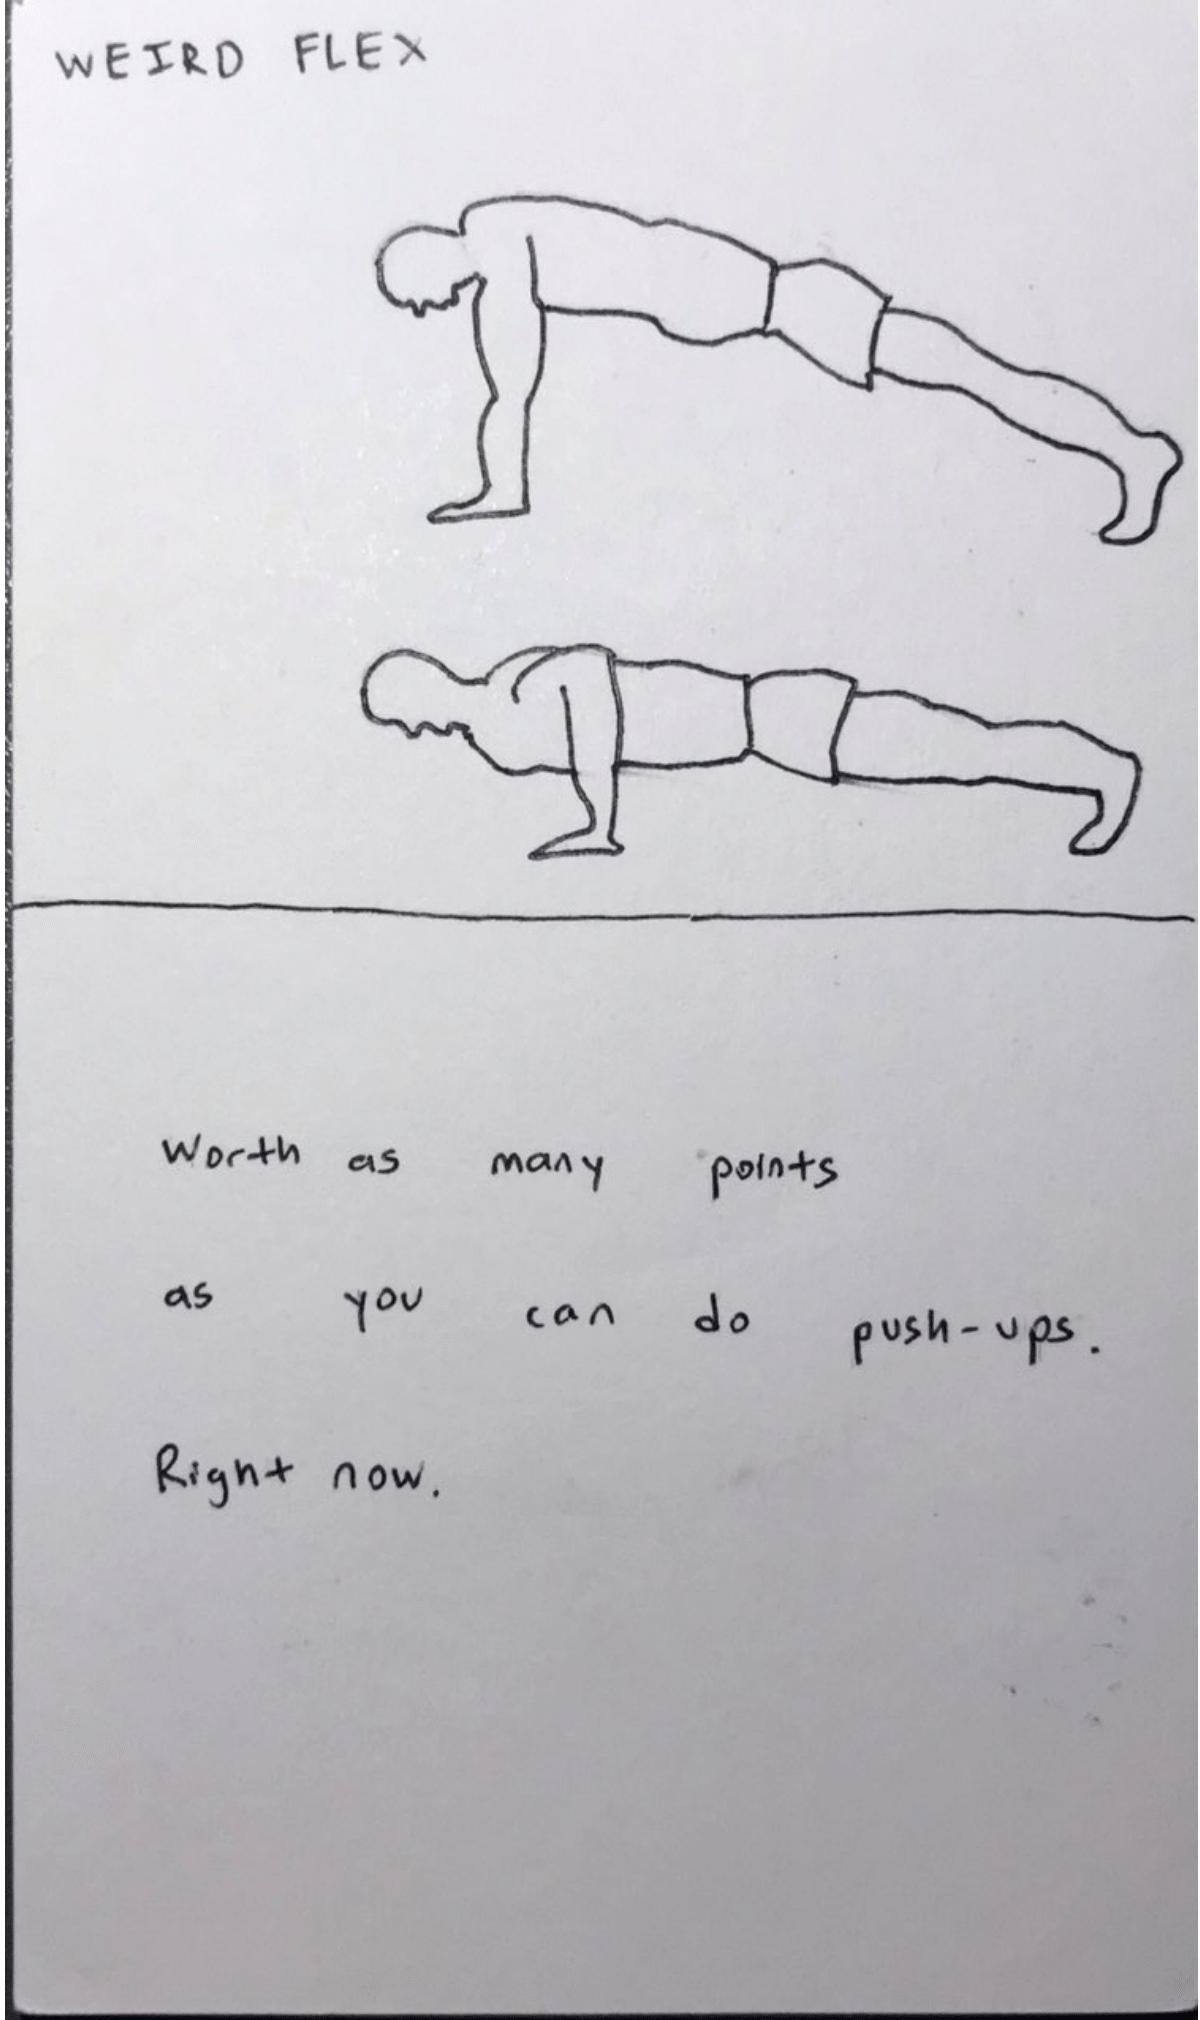 WEIRD FLEX
Worth as many points
as you can do push-ups.
Right now.